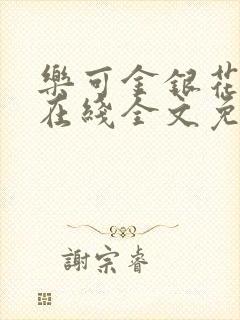 樂可金銀花
在綫全文免
謝宗睿